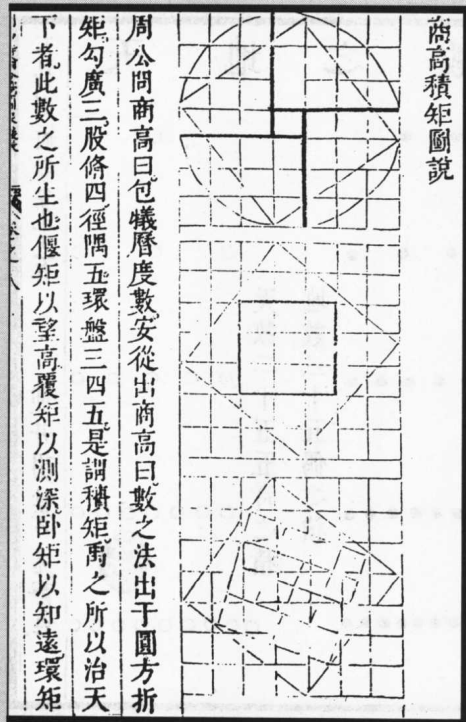 商高積矩圖說
周公問商高曰包犧曆度數安從出商高曰數之法出于圓方折
矩勾廣三股脩四徑隅五環盤三四五是謂積矩禹之所以治天
下者此數之所生也偃矩以望高覆矩以測深卧矩以知遠環矩